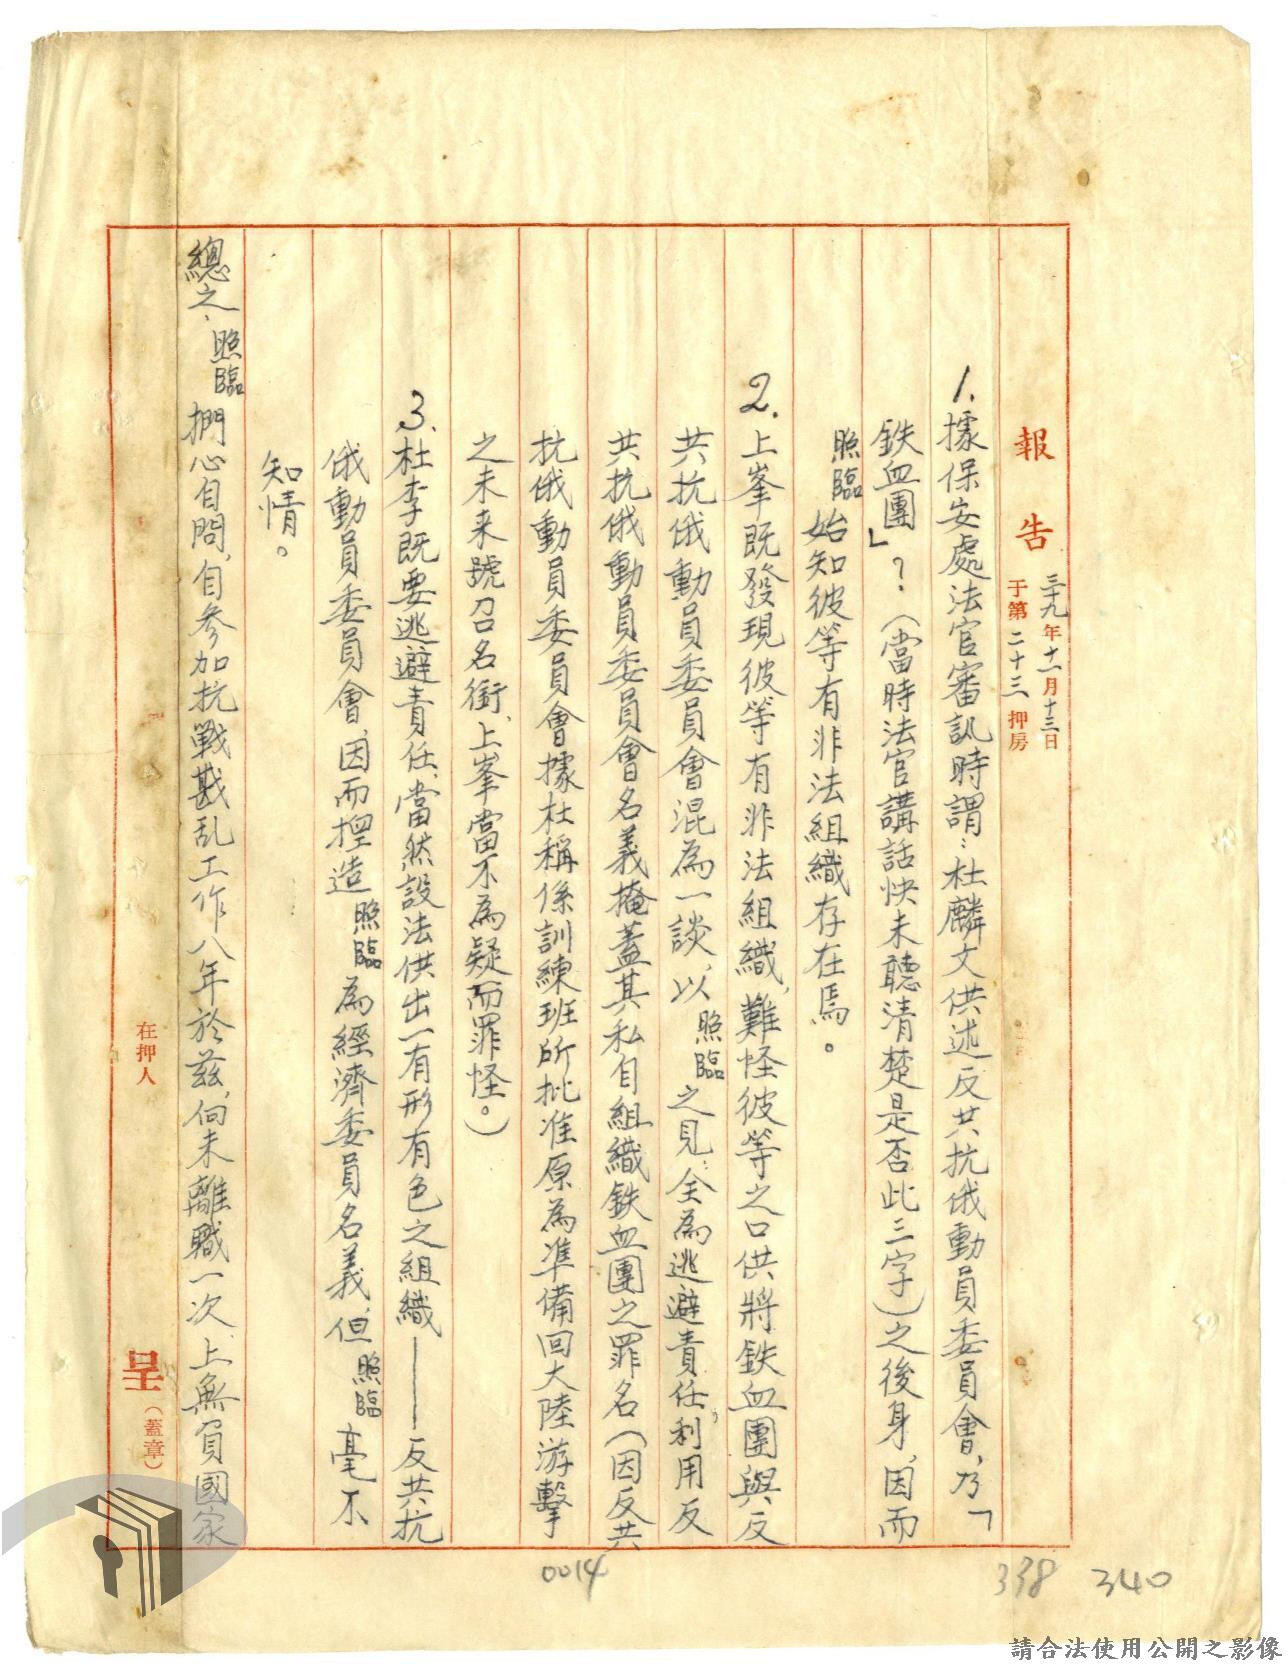 報告 三十九年十一月十三日
于第二十三押房
1.據保安處法官審訊時謂：杜麟文供述反共抗俄動員委員會，乃「
鉄血團」？（當時法官講話快未聽清楚是否此三字）之後身，因而
照臨始知彼等有非法組織存在焉。
2.上峯既發現彼等有非法組織，難怪彼等之口供將鉄血團與反
共抗俄動員委員會混為一談，以照臨之見：全為逃避責任，利用反
共抗俄動員委員會名義掩蓋其私自組織鉄血團之罪名（因反共
抗俄動員委員會據杜稱係訓練班所批准原為準備回大陸游擊
之未来號召名銜，上峯當不為疑而罪怪。）
3.杜李既要逃避責任，當然設法供出一有形有色之組織——反共抗
俄動員委員會，因而揑造照臨為經濟委員名義，但照臨毫不
知情。
總之，照臨捫心自問，自參加抗戰戡乱工作八年於兹，向未離職一次，上無負國家
在押人
呈（蓋章）
0014
338
340
請合法使用公開之影像